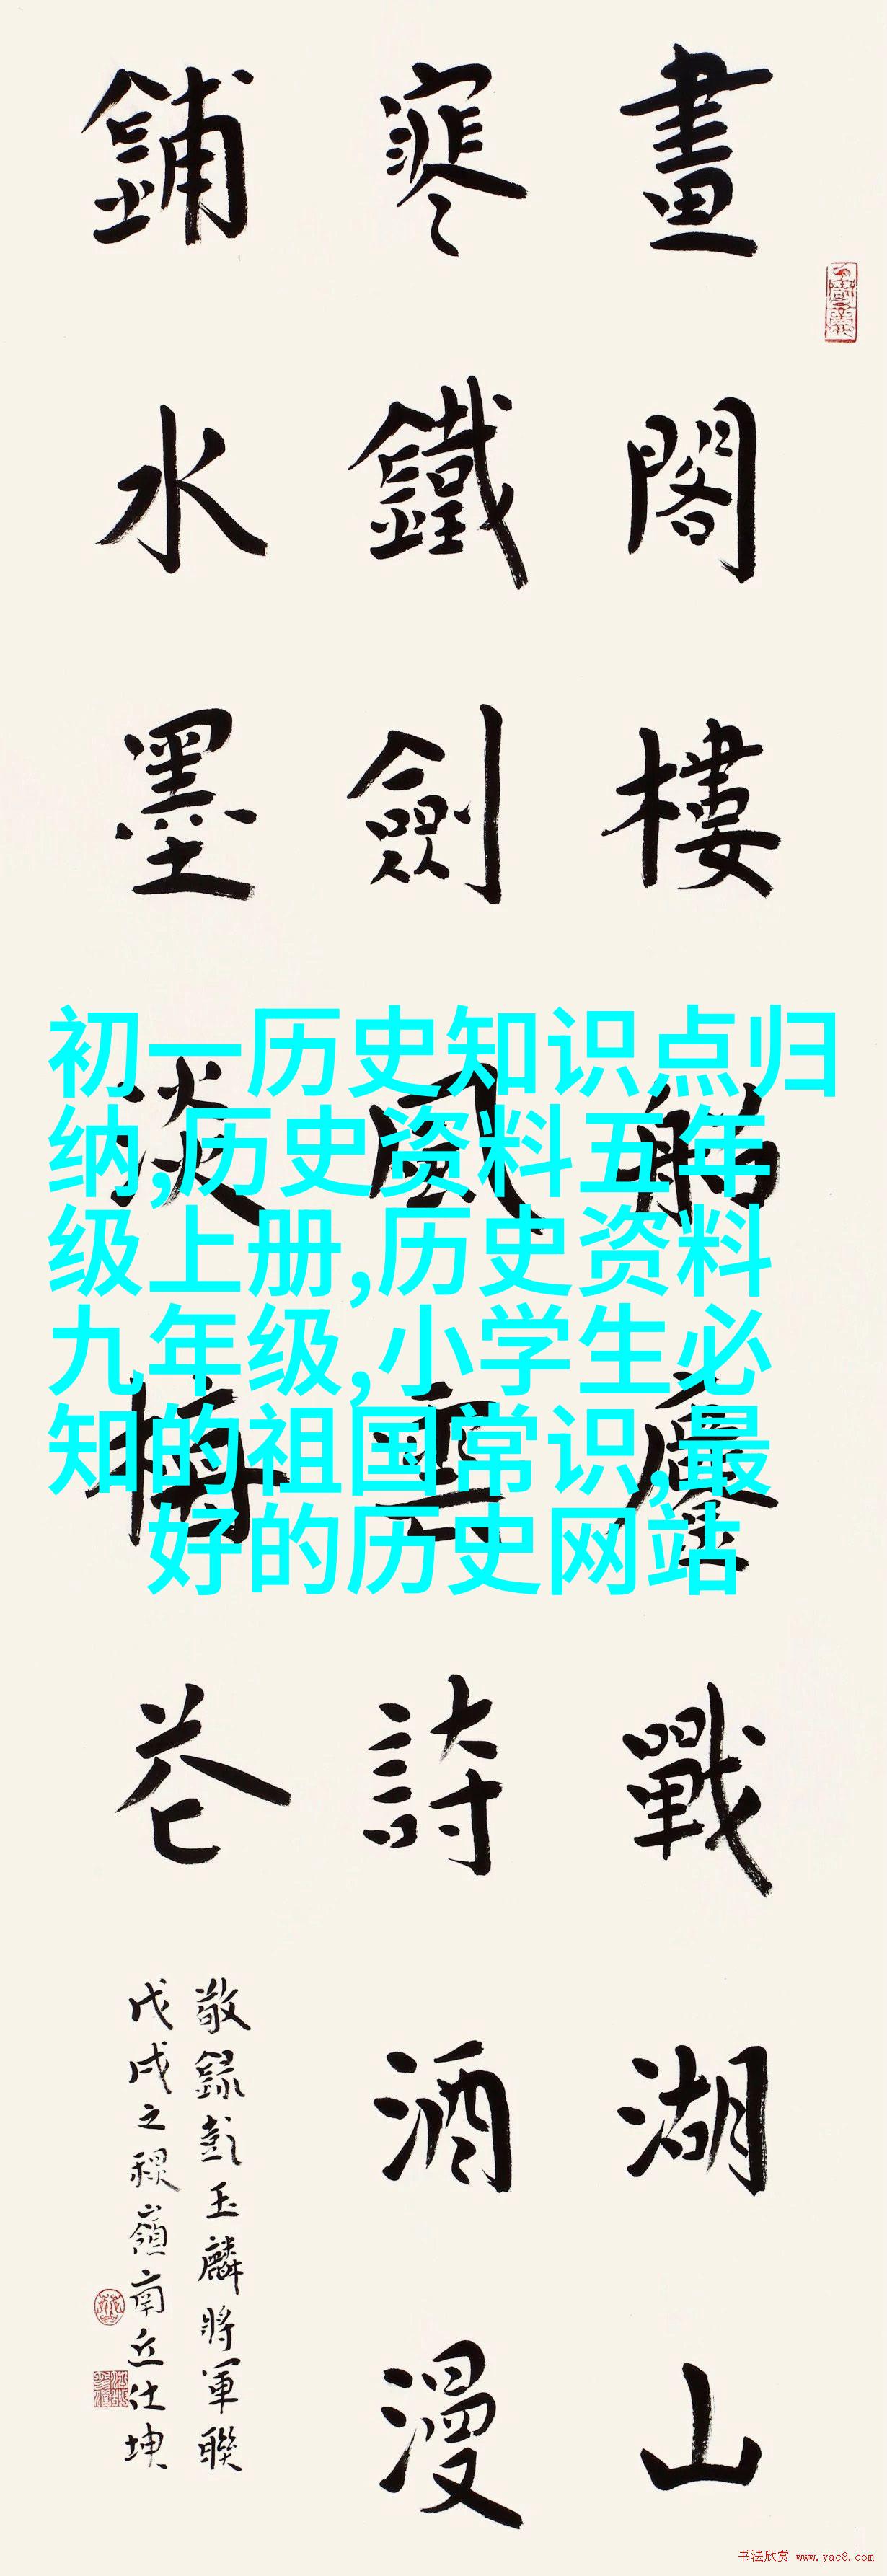 畫閣樓船鏖戰湖山
寒鐵劍風雪詩酒漫
鋪水墨淡梅花
敬錄彭玉麟將軍聯
戊戌之稷嶺南丘仕坤
初一历史知识点归
纳,历史资料五年
级上册,历史资料
九年级,小学生必
知的祖国常识,最
好的历史网站
书法欣赏 www.yac8.com